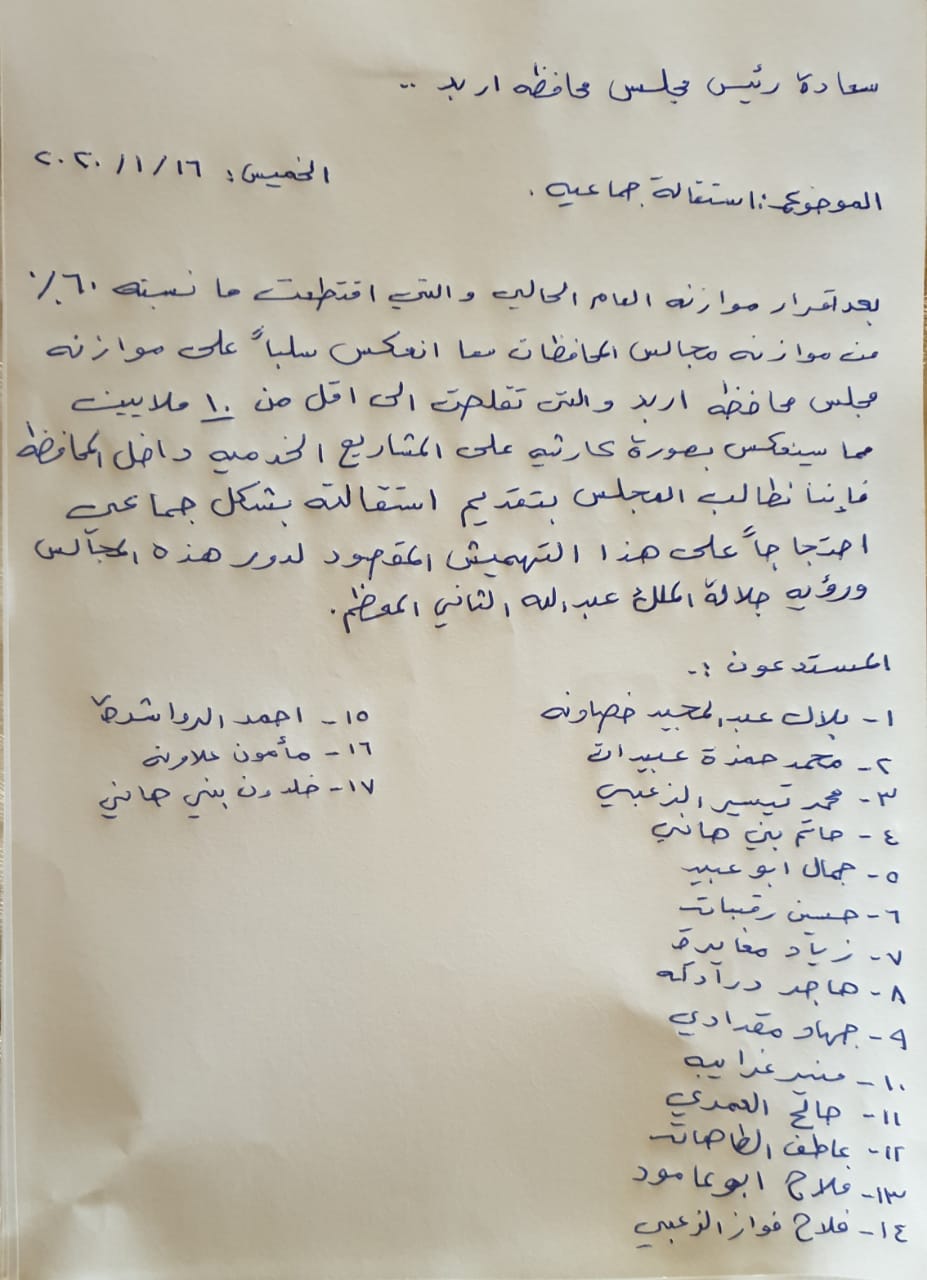 سعادة رئيس مجلس محافظه اربد ..
الخميس: ١٦/١/٢٠٢٠
الموضوع: استقالة جماعيه .
بعد اقرار موازنه العام الحالي والتي اقتطعت ما نسبته ٦٠٪
من موازنه مجالس المحافظات مما انعكس سلباً على موازنه
مجلس محافظه اربد والتي تقلصت الى اقل من ١٠ ملايين
مما سينعكس بصورة كارثيه على المشاريع الخدميه داخل المحافظه
فإننا نطالب المجلس بتقديم استقالته بشكل جماعي
احتجاجاً على هذا التهميش المقصود لدور هذه المجالس
ورؤيه جلالة الملك عبدالله الثاني المعظم.
المستدعون :-
١- بلال عبدالمجيد خصاونه
٢- محمد حمزة عبيدات
٣- محمد تيسير الزعبي
٤- حاتم بني هاني
٥- جمال ابو عبيد
٦- حسين رقيبات
٧- زياد مغايرة
٨- ماجد درادكه
٩- جهاد مقدادي
١٠- منير غرايبه
١١- صالح العمري
١٢- عاطف الطاهات
١٣- فلاح ابوعامود
١٤- فلاح فواز الزعبي
١٥- احمد الرواشدة
١٦- مأمون علاونه
١٧- خلدون بني هاني